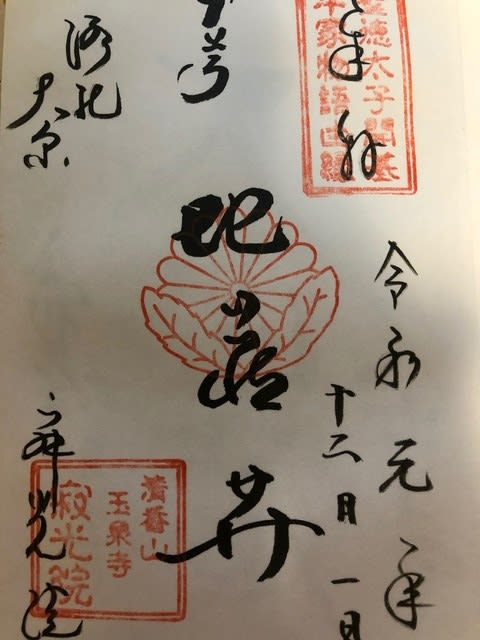 奉拝
聖徳太子開基
平家物語由縁
令和元年
十二月一日
地蔵𦬇
洛北
大原
寂光院
清香山
玉泉寺
寂光院